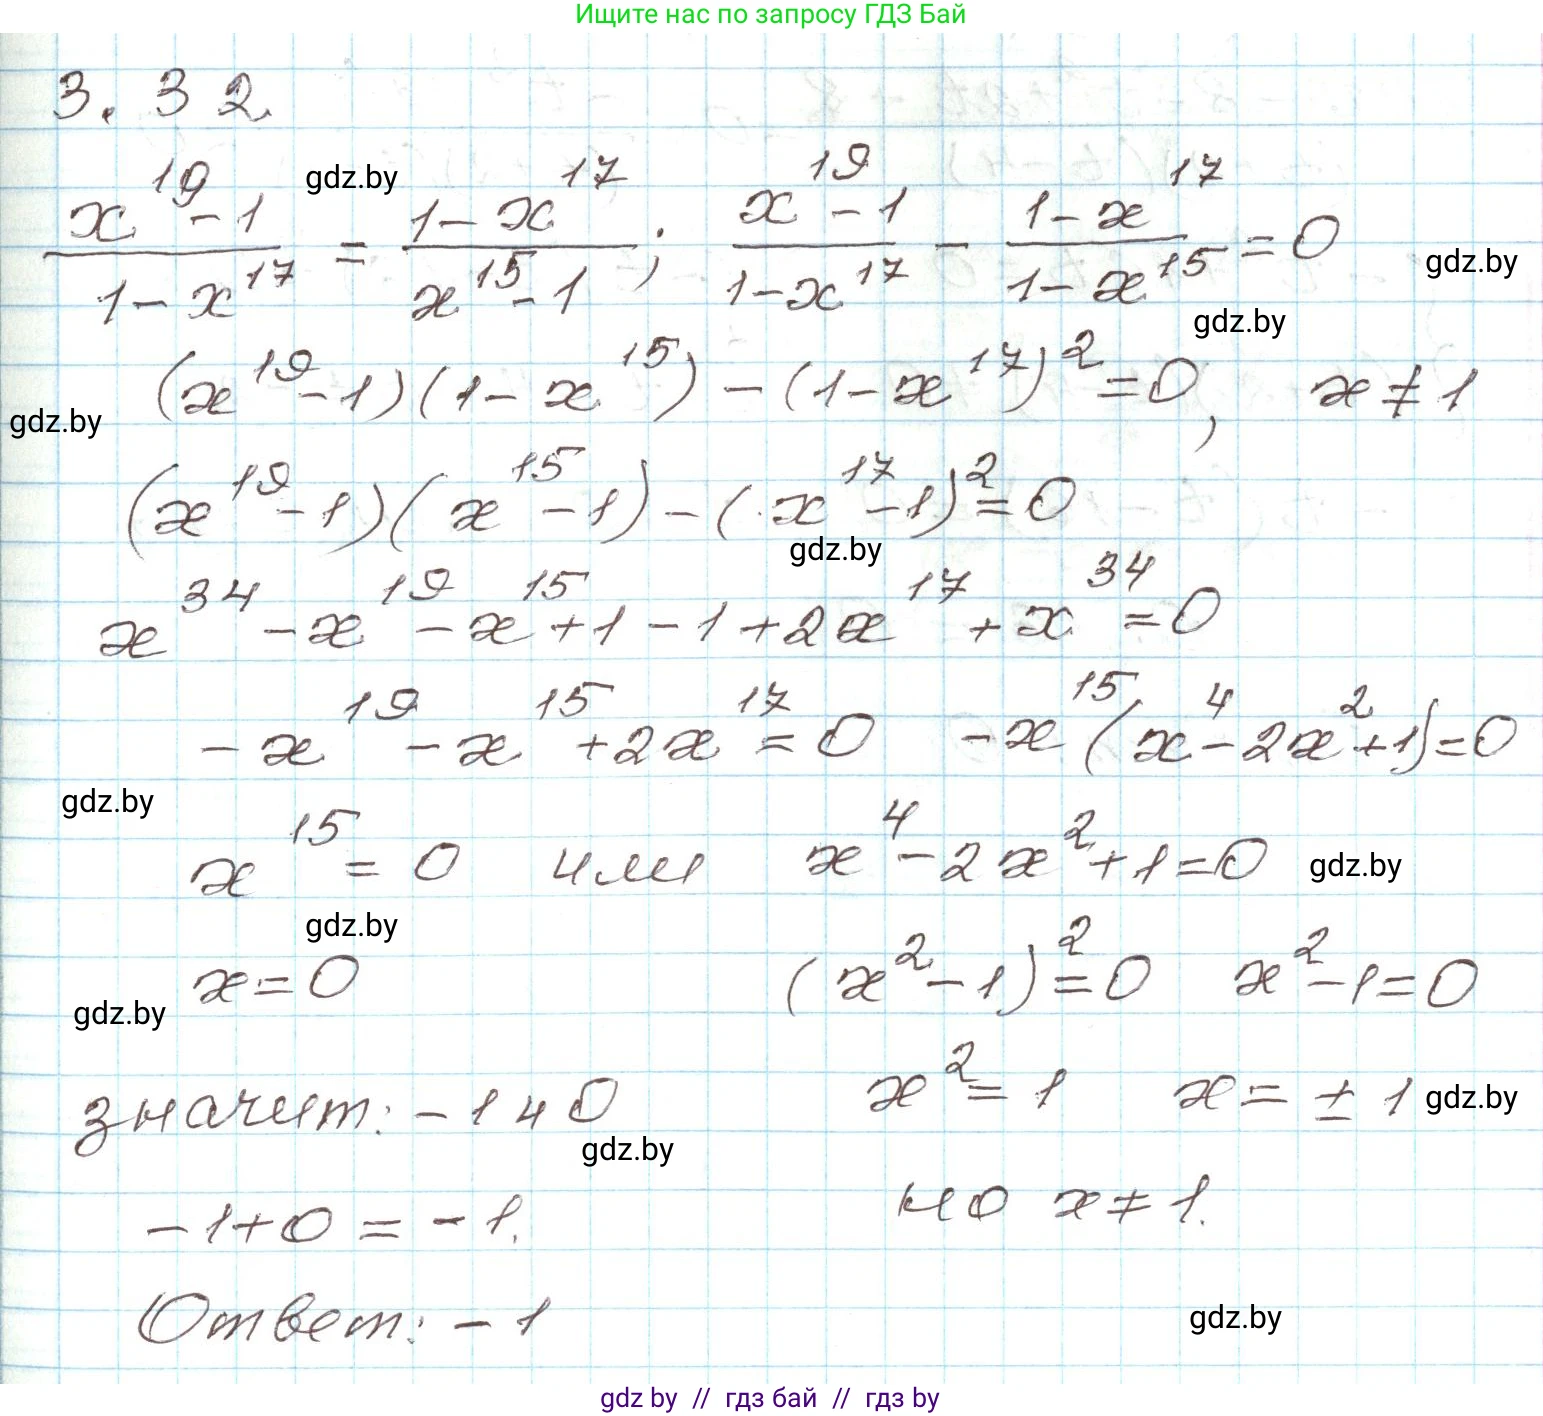 Ищите нас по запросу ГДЗ Бай
3.32.
(x^19 - 1)/(1 - x^17) = (1 - x^17)/(x^15 - 1); (x^19 - 1)/(1 - x^17) - (1 - x^17)/(1 - x^15) = 0
gdz.by gdz.by gdz.by gdz.by
(x^19 - 1)(1 - x^15) - (1 - x^17)^2 = 0, x ≠ 1
gdz.by
(x^19 - 1)(x^15 - 1) - (x^17 - 1)^2 = 0
gdz.by
x^34 - x^19 - x^15 + 1 - 1 + 2x^17 + x^34 = 0
- x^19 - x^15 + 2x^17 = 0 - x^15 (x^4 - 2x^2 + 1) = 0
gdz.by
x^15 = 0 или x^4 - 2x^2 + 1 = 0 gdz.by
gdz.by
x = 0 (x^2 - 1)^2 = 0 x^2 - 1 = 0
gdz.by
значит: - 1 и 0 x^2 = 1 x = ± 1 gdz.by
gdz.by
- 1 + 0 = - 1. но x ≠ 1.
Ответ: - 1 gdz.by
gdz by // гдз бай // гдз by